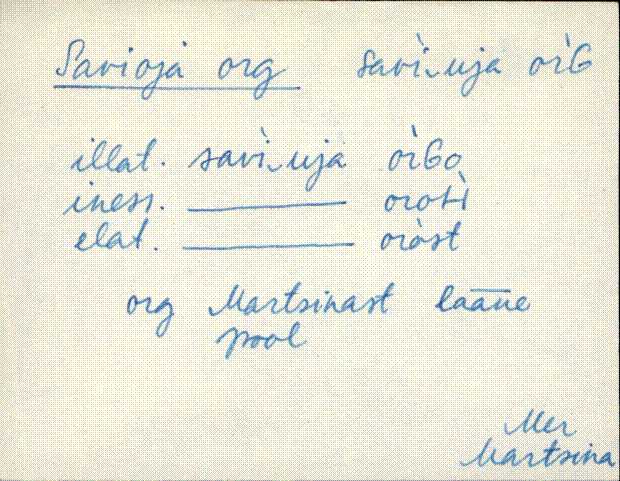 Savioja org savì‿uja oìG
illat. savì‿uja oìGo
iness. ——— orosì
elat. ——— oròst
org Martsinast lääne
pool
Mer
Martsina